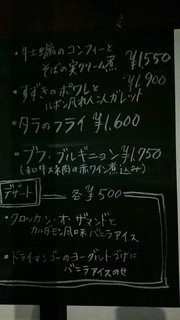 ・牡蠣のコンフィーと
そばの実クリーム煮 ¥1550
・すずきのポワレと ¥1,900
風人にんじんガレット
・タラのフライ ¥1,600
・ブフ・ブルギニョン ¥1,750
(和牛スネ肉の赤ワイン煮込み)
デザート 各¥500
・クロッカン・オ・ザマンドと
カルダモン風味バニラアイス
・ドライマンゴーのヨーグルトづけに
バニラアイスのせ